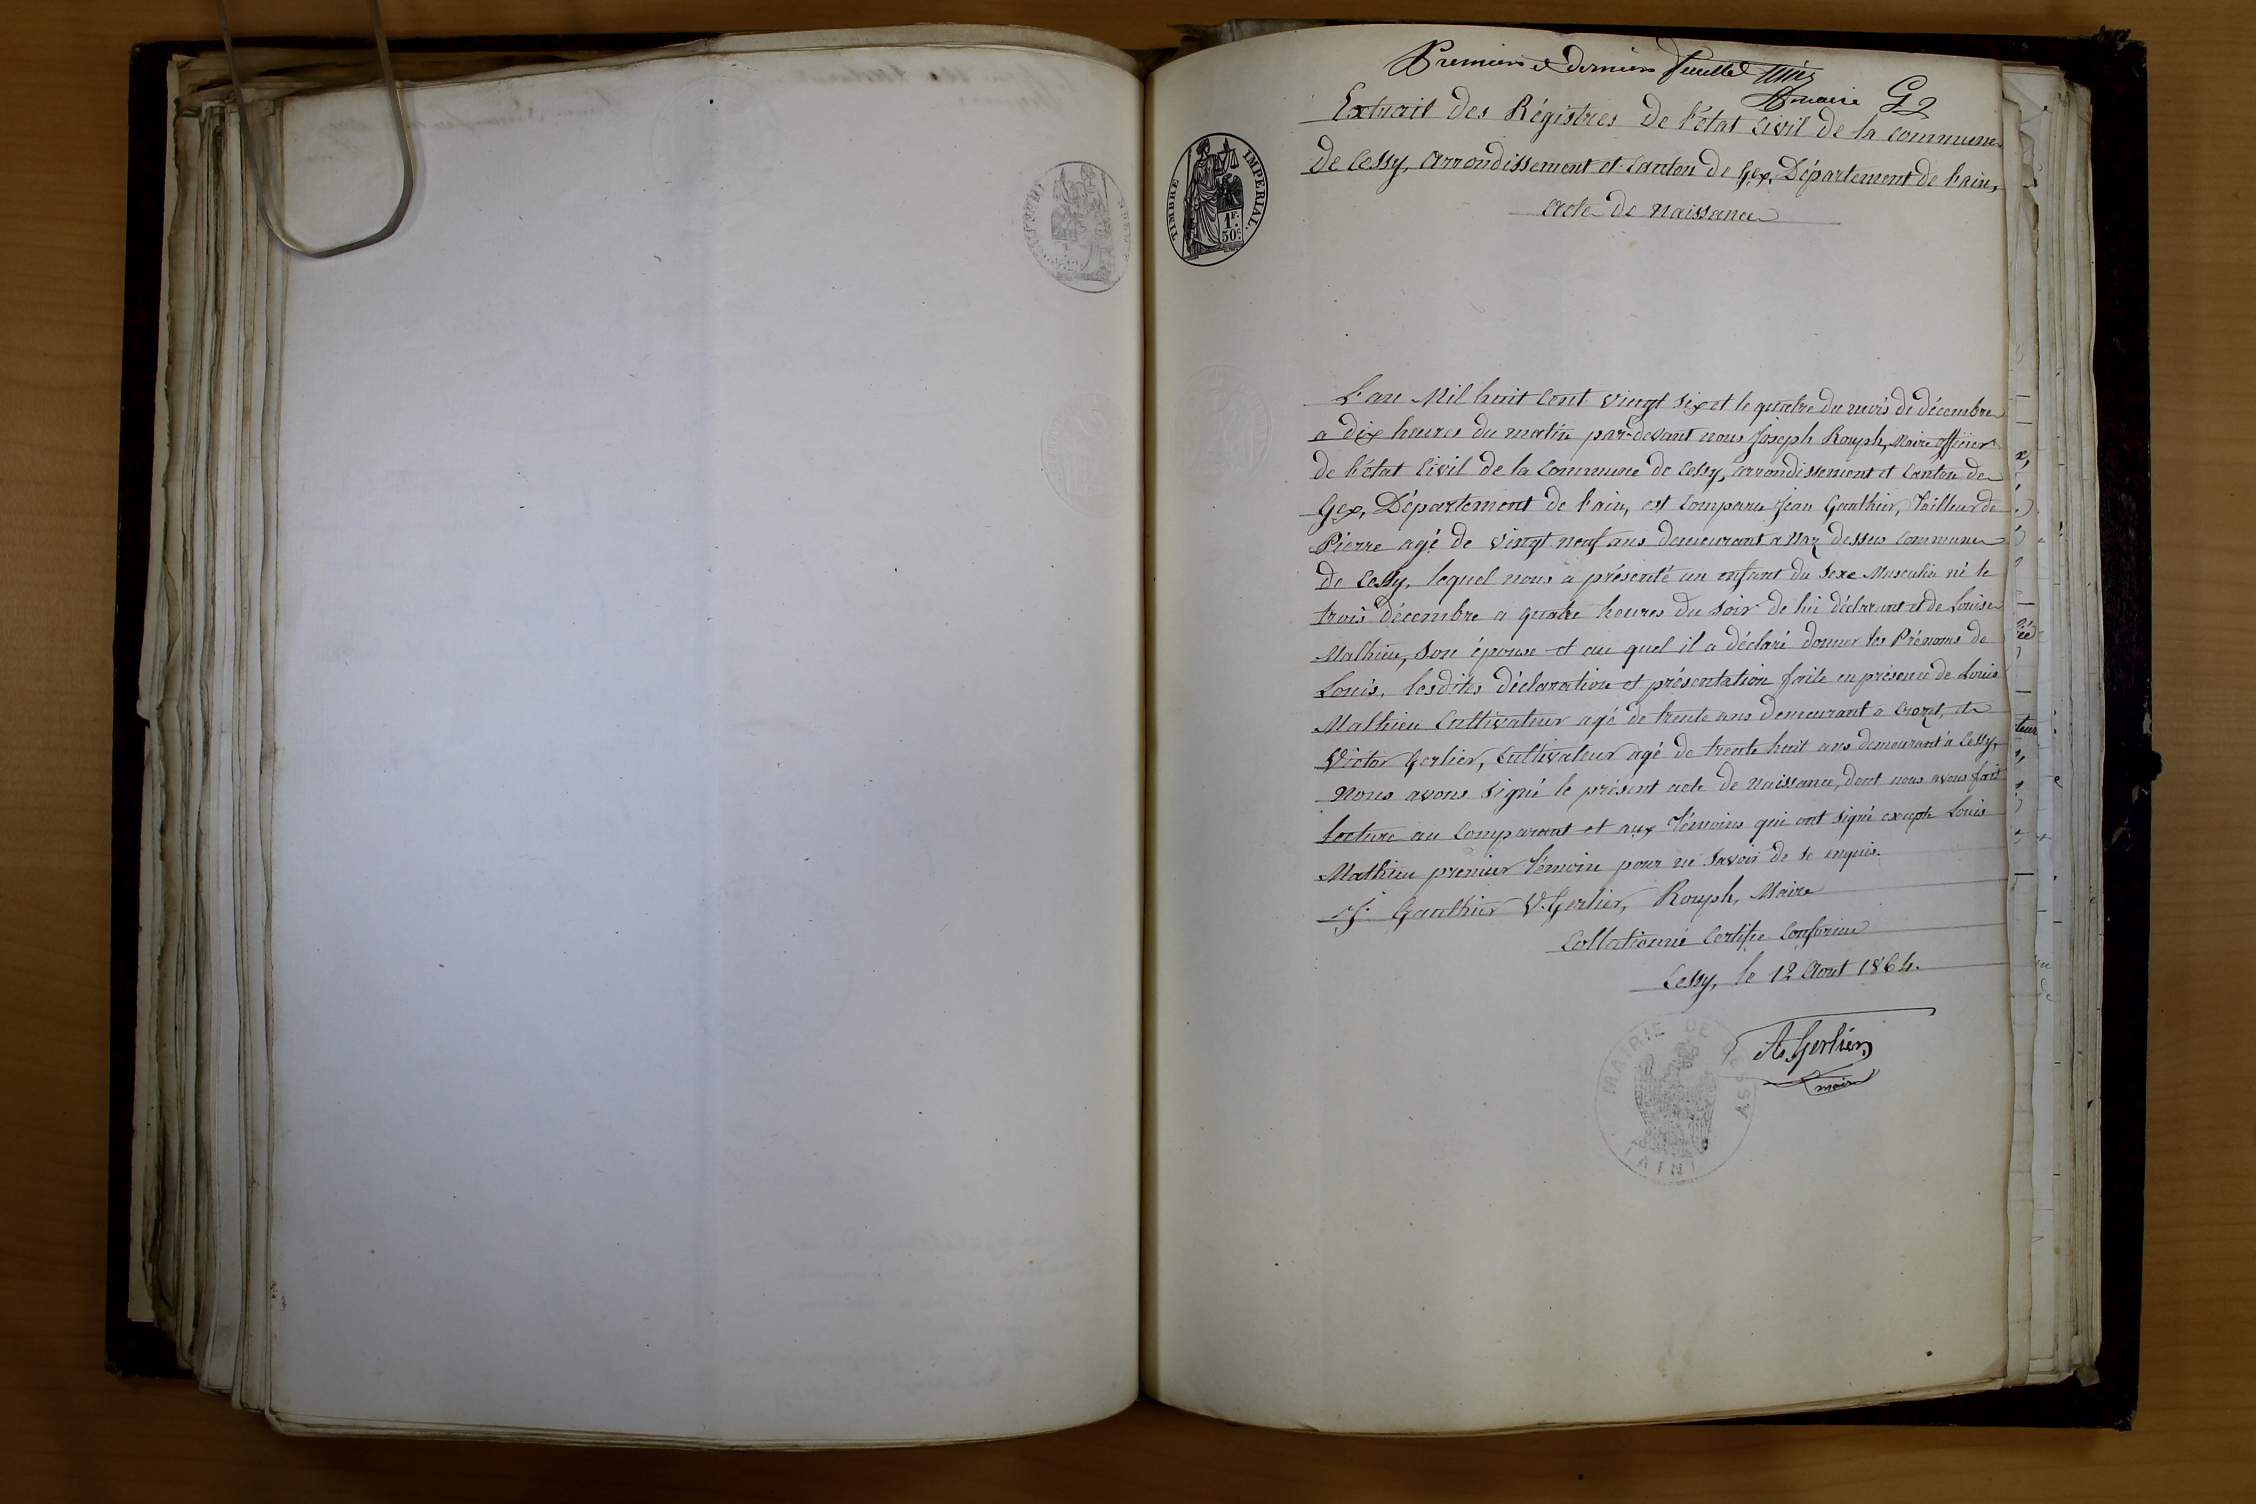 Premier et dernier feuillet
G2
Extrait des Régistres de l'état Civil de la commune
de Cessy, arrondissement et Canton de Gex, Département de l'ain,
acte de naissance
TIMBRE IMPERIAL
1F. 50c.
L'an Mil huit Cent vingt six et le quatre du mois de décembre
a dix heures du matin par-devant nous Joseph Rouph, Maire officier
de l'état Civil de la Commune de Cessy, arrondissement et Canton de
Gex, Département de l'ain, est Comparu Jean Gauthier, Tailleur de
Pierre agé de vingt neuf ans demeurant a Naz dessus Commune
de Cessy, lequel nous a présenté un enfant du Sexe Masculin né le
trois décembre a quatre heures du soir de lui déclarant et de Louise
Mathieu, Son épouse et au quel il a déclaré donner les Prénoms de
Louis, lesdites déclaration et présentation faite en présence de Louis
Mathieu Cultivateur agé de trente ans demeurant a Crozet, et
Victor Gerlier, Cultivateur agé de trente huit ans demeurant a Cessy,
Nous avons signé le présent acte de Naissance, dont nous avons fait
lecture au Comparant et aux Témoins qui ont signé excepté Louis
Mathieu premier Témoin pour ne Savoir de ce enquis.
J. Gauthier V. Gerlier, Rouph, Maire
Collationné Certifié Conforme
Cessy, le 12 Aout 1864.
A Gerlier
maire
MAIRIE DE
(AIN)